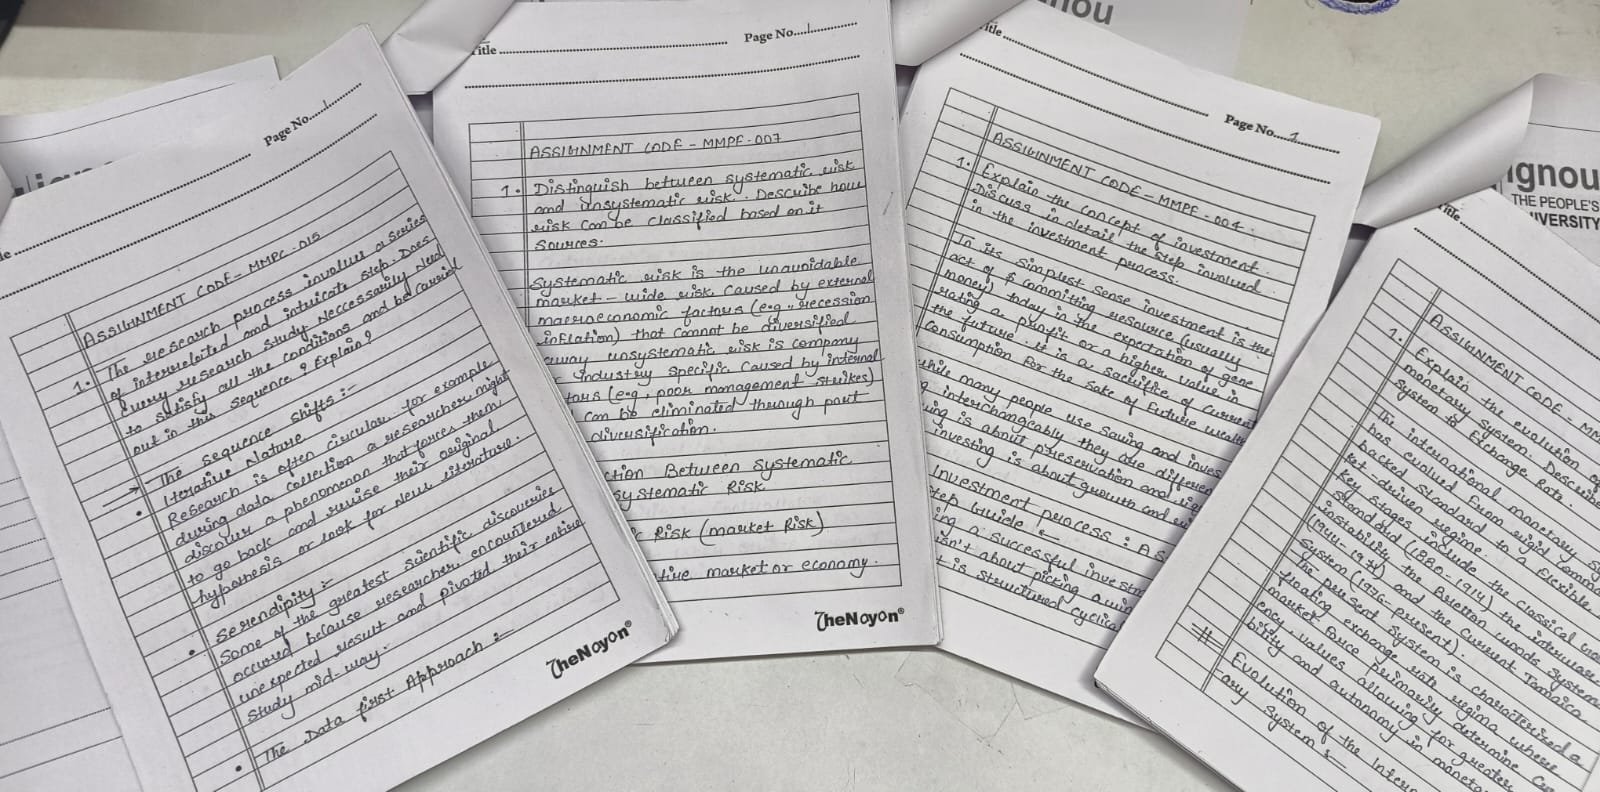 Page No....1
ASSIGNMENT CODE - MMPC-015
1. The research process involve a series
of interrelated and intricate step. Does
every research study neccessarily need
to satisfy all the conditions and be carried
out in this sequence? Explain?
→ The sequence shifts :-
• Iterative Nature
Research is often circular. for example
during data collection a researcher might
discover a phenomenon that forces them
to go back and revise their original
hypothesis or look for new literature.
• Serendipity :-
Some of the greatest scientific discoveries
occured because researchers encountered
unexpected result and pivoted their entire
study mid-way.
• The Data first Approach :-
TheNoyon®
Title
Page No....1
ASSIGNMENT CODE - MMPF-007
1. Distinguish between systematic risk
and unsystematic risk. Describe how
risk can be classified based on it
sources.
Systematic risk is the unavoidable
market-wide risk caused by external
macroeconomic factors (e.g., recession
inflation) that cannot be diversified
away unsystematic risk is company
industry specific caused by internal
tors (e.g, poor management, strikes)
can be eliminated through port
diversification.
ction Between Systematic
systematic Risk
c Risk (market Risk)
tire market or economy.
TheNoyon®
nou
itle
Page No....1
ASSIGNMENT CODE - MMPF-004
1. Explain the concept of investment.
Discuss in detail the step involved
in the investment process.
In its simplest sense investment is the
act of $ committing resource (usually
money) today in the expectation of gene
rating a profit or a higher value in
the future. It is a sacrifice of current
consumption for the sake of future wealth
while many people use saving and inves
g interchangeably they are differen
ving is about preservation and
investing is about growth and
Investment process : A s
tep Guide
ing a successful investm
isn't about picking a win
t is structured cyclica
ignou
THE PEOPLE'S
IVERSITY
Title
ASSIGNMENT CODE - MM
1. Explain the evolution of
monetary System. Describe
System to Exchange Rate.
The international monetary sy
has evolved from rigid commo
backed standard to a flexible,
ket-driven regime.
Key stages include the classical Gol
standard (1880-1914) the interwar
instability, the Bretton woods system
(1944-1971) and the current Jamaica
System (1976-present).
The present system is characterized a
floating exchange rate regime where
market force primarily determine Curr
ency, values allowing for greater
bility and autonomy in moneta
# Evolution of the Intern
ary System :-